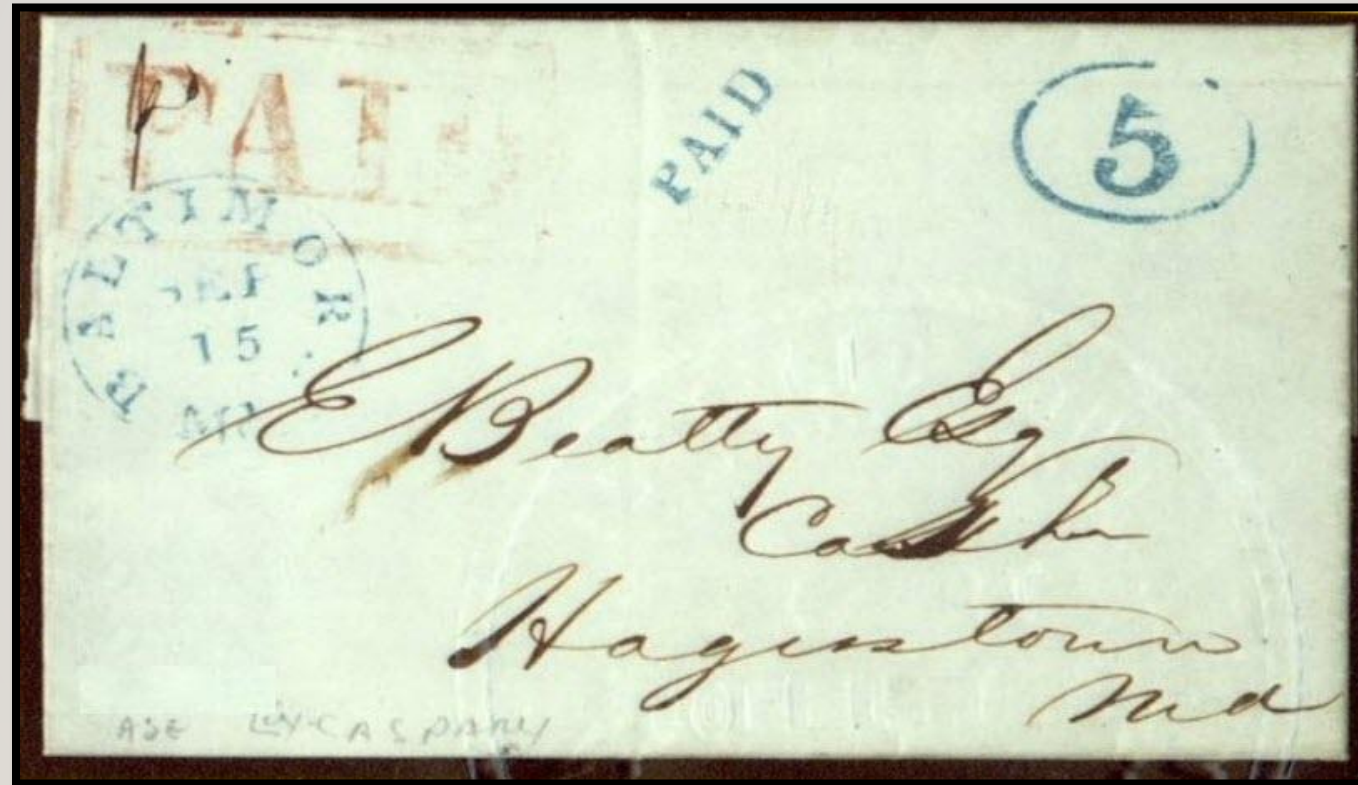 PAID
PAID
5
BALTIMORE
SEP
15
MD
E Beatty Esq
Cashr
Hagerstown
Md
EX-CASPARY